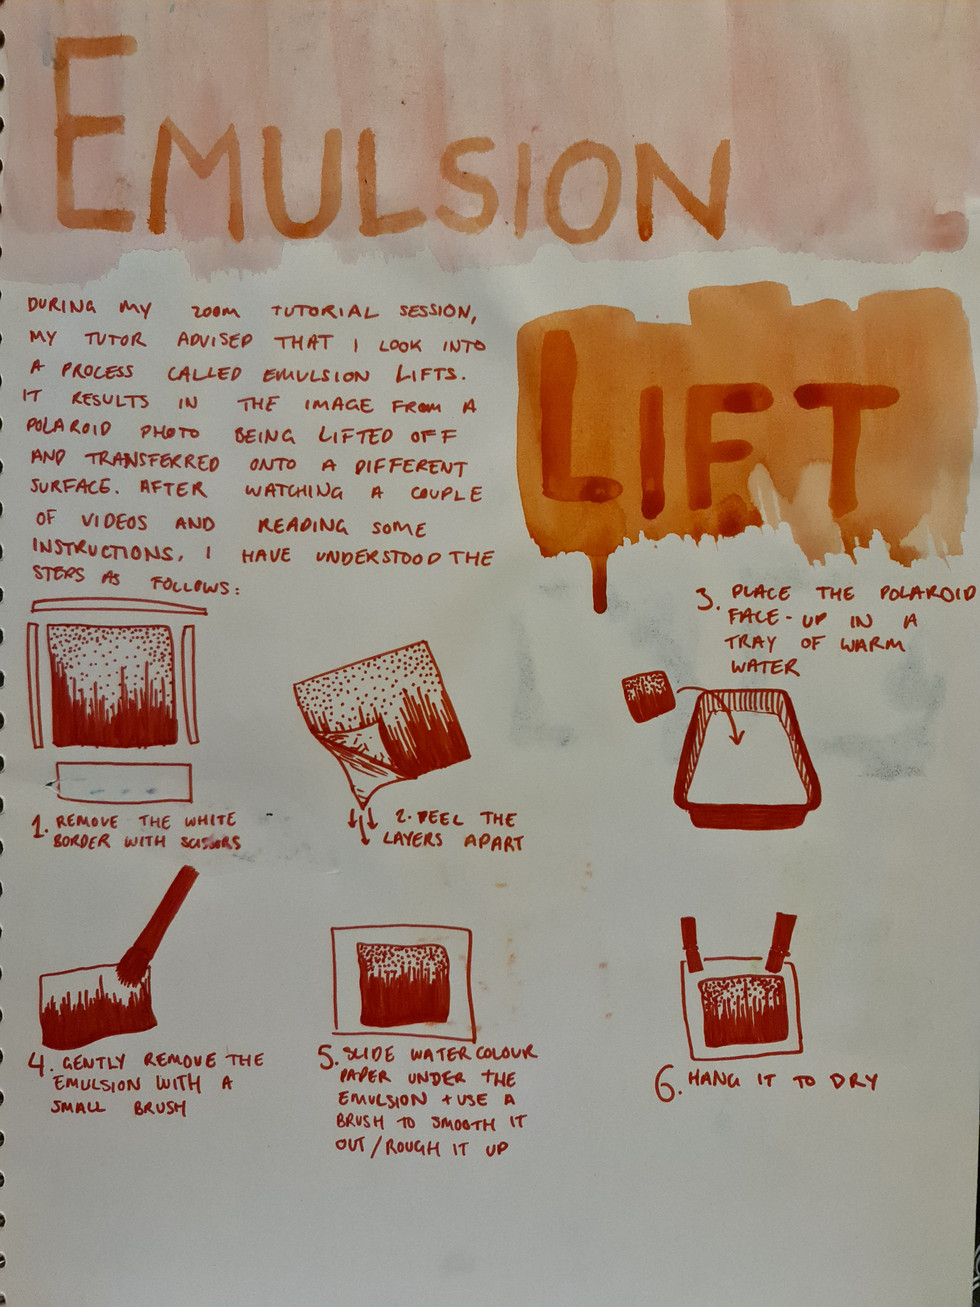 EMULSION
LIFT
DURING MY ZOOM TUTORIAL SESSION,
MY TUTOR ADVISED THAT I LOOK INTO
A PROCESS CALLED EMULSION LIFTS.
IT RESULTS IN THE IMAGE FROM A
POLAROID PHOTO BEING LIFTED OFF
AND TRANSFERRED ONTO A DIFFERENT
SURFACE. AFTER WATCHING A COUPLE
OF VIDEOS AND READING SOME
INSTRUCTIONS, I HAVE UNDERSTOOD THE
STEPS AS FOLLOWS:
1. REMOVE THE WHITE
BORDER WITH SCISSORS
2. PEEL THE
LAYERS APART
3. PLACE THE POLAROID
FACE-UP IN A
TRAY OF WARM
WATER
4. GENTLY REMOVE THE
EMULSION WITH A
SMALL BRUSH
5. SLIDE WATERCOLOUR
PAPER UNDER THE
EMULSION + USE A
BRUSH TO SMOOTH IT
OUT/ROUGH IT UP
6. HANG IT TO DRY